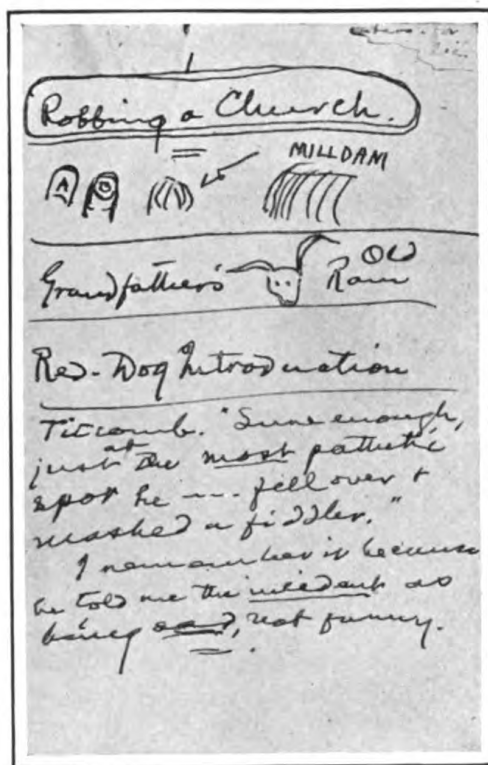 Robbing a Church.
MILLDAM
A B
Grandfather's Old Ram
Red-Dog Introduction
Titcomb. "Sure enough,
just at the most pathetic
spot he --- fell over &
mashed a fiddler."
I remember it because
he told me the incident as
being sad, not funny.